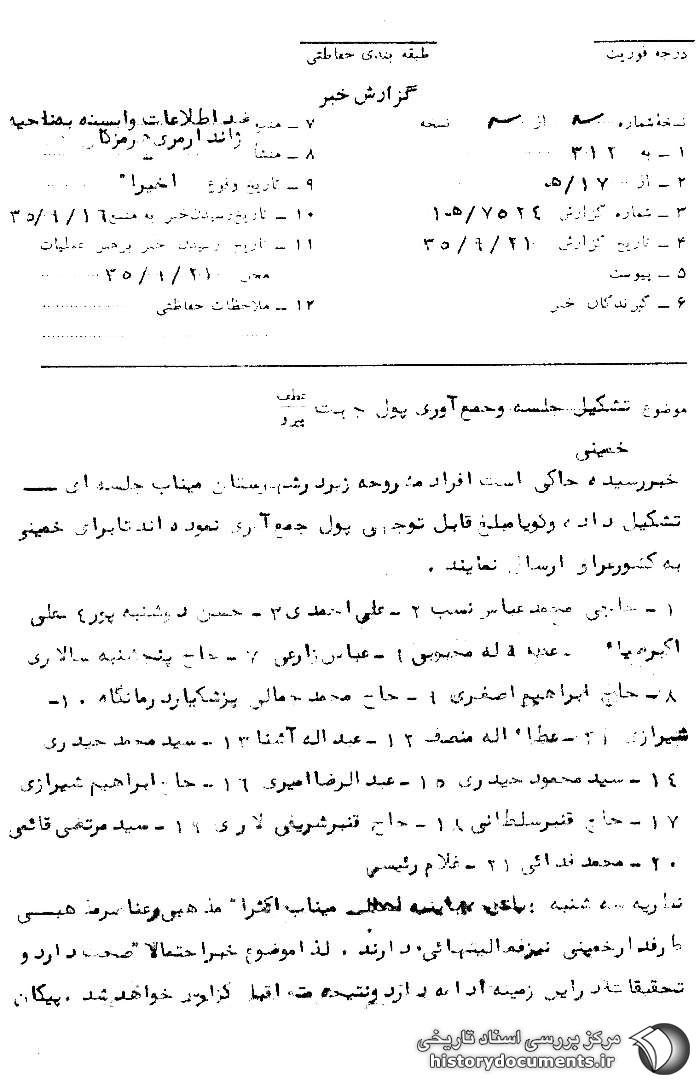 درجه فوریت
طبقه بندی حفاظتی
گزارش خبر
نسخهٔ شماره از نسخه
۱ ـ به ۳۱۲
۲ ـ از ۵/۱۷ه
۳ ـ شماره گزارش ۱۰۵/۷۵۲٤
۴ ـ تاریخ گزارش ۳۵/۹/۲۱
۵ ـ پیوست
۶ ـ گیرندگان خبر
۷ ـ منبع اطلاعات وابسته بناحیه
ژاندارمری هرمزگان
۸ ـ منشأ
۹ ـ تاریخ وقوع اخیرا"
۱۰ ـ تاریخ رسیدن خبر به منبع ۳۵/۹/۱۶
۱۱ ـ تاریخ رسیدن خبر برهبر عملیات
محل ۳۵/۹/۲۰
۱۲ ـ ملاحظات حفاظتی
موضوع تشکیل جلسه وجمع آوری پول جهت عطف
پیرو
خمینی
خبررسیده حاکی است افراد مشروحه زیردرشهرستان میناب جلسه ای ــ
تشکیل داده وگویا مبلغ قابل توجهی پول جمع آوری نموده اند تابرای خمینی
به کشورعراق ارسال نمایند .
۱ ـ حاجی محمدعباس نسب ۲ ـ علی احمدی ۳ ـ حسن دوشنبه پور ٤ ـ علی
اکبر ـ محبوبی ۶ ـ عباس زارعی ۷ ـ حاج پنجشنبه سالاری
۸ ـ حاج ابراهیم اصغری ۹ ـ حاج محمد جمالی پزشکیاردرمانگاه ۱۰ ـ
شیرازی ۱۱ ـ عطاء اله منصف ۱۲ ـ عبداله آشنا ۱۳ ـ سید محمد حیدری
۱٤ ـ سید محمود حیدری ۱۵ ـ عبدالرضا امیری ۱۶ ـ حاج ابراهیم شیرازی
۱۷ ـ حاج قنبرسلطانی ۱۸ ـ حاج قنبرشریفی لاری ۱۹ ـ سید مرتضی قائمی
۲۰ ـ محمد فدائی ۲۱ ـ غلام رئیسی
نظریه سه شنبه : میناب اکثرا" مذهبی وعناصرمذهبی
طرفدارخمینی نیزفعالیتهائی دارند . لذا موضوع خبراحتمالا" صحت دارد و
تحقیقات دراین زمینه ادامه دارد ونتیجه گزارش خواهد شد . پیکان
مرکز بررسی اسناد تاریخی
historydocuments.ir